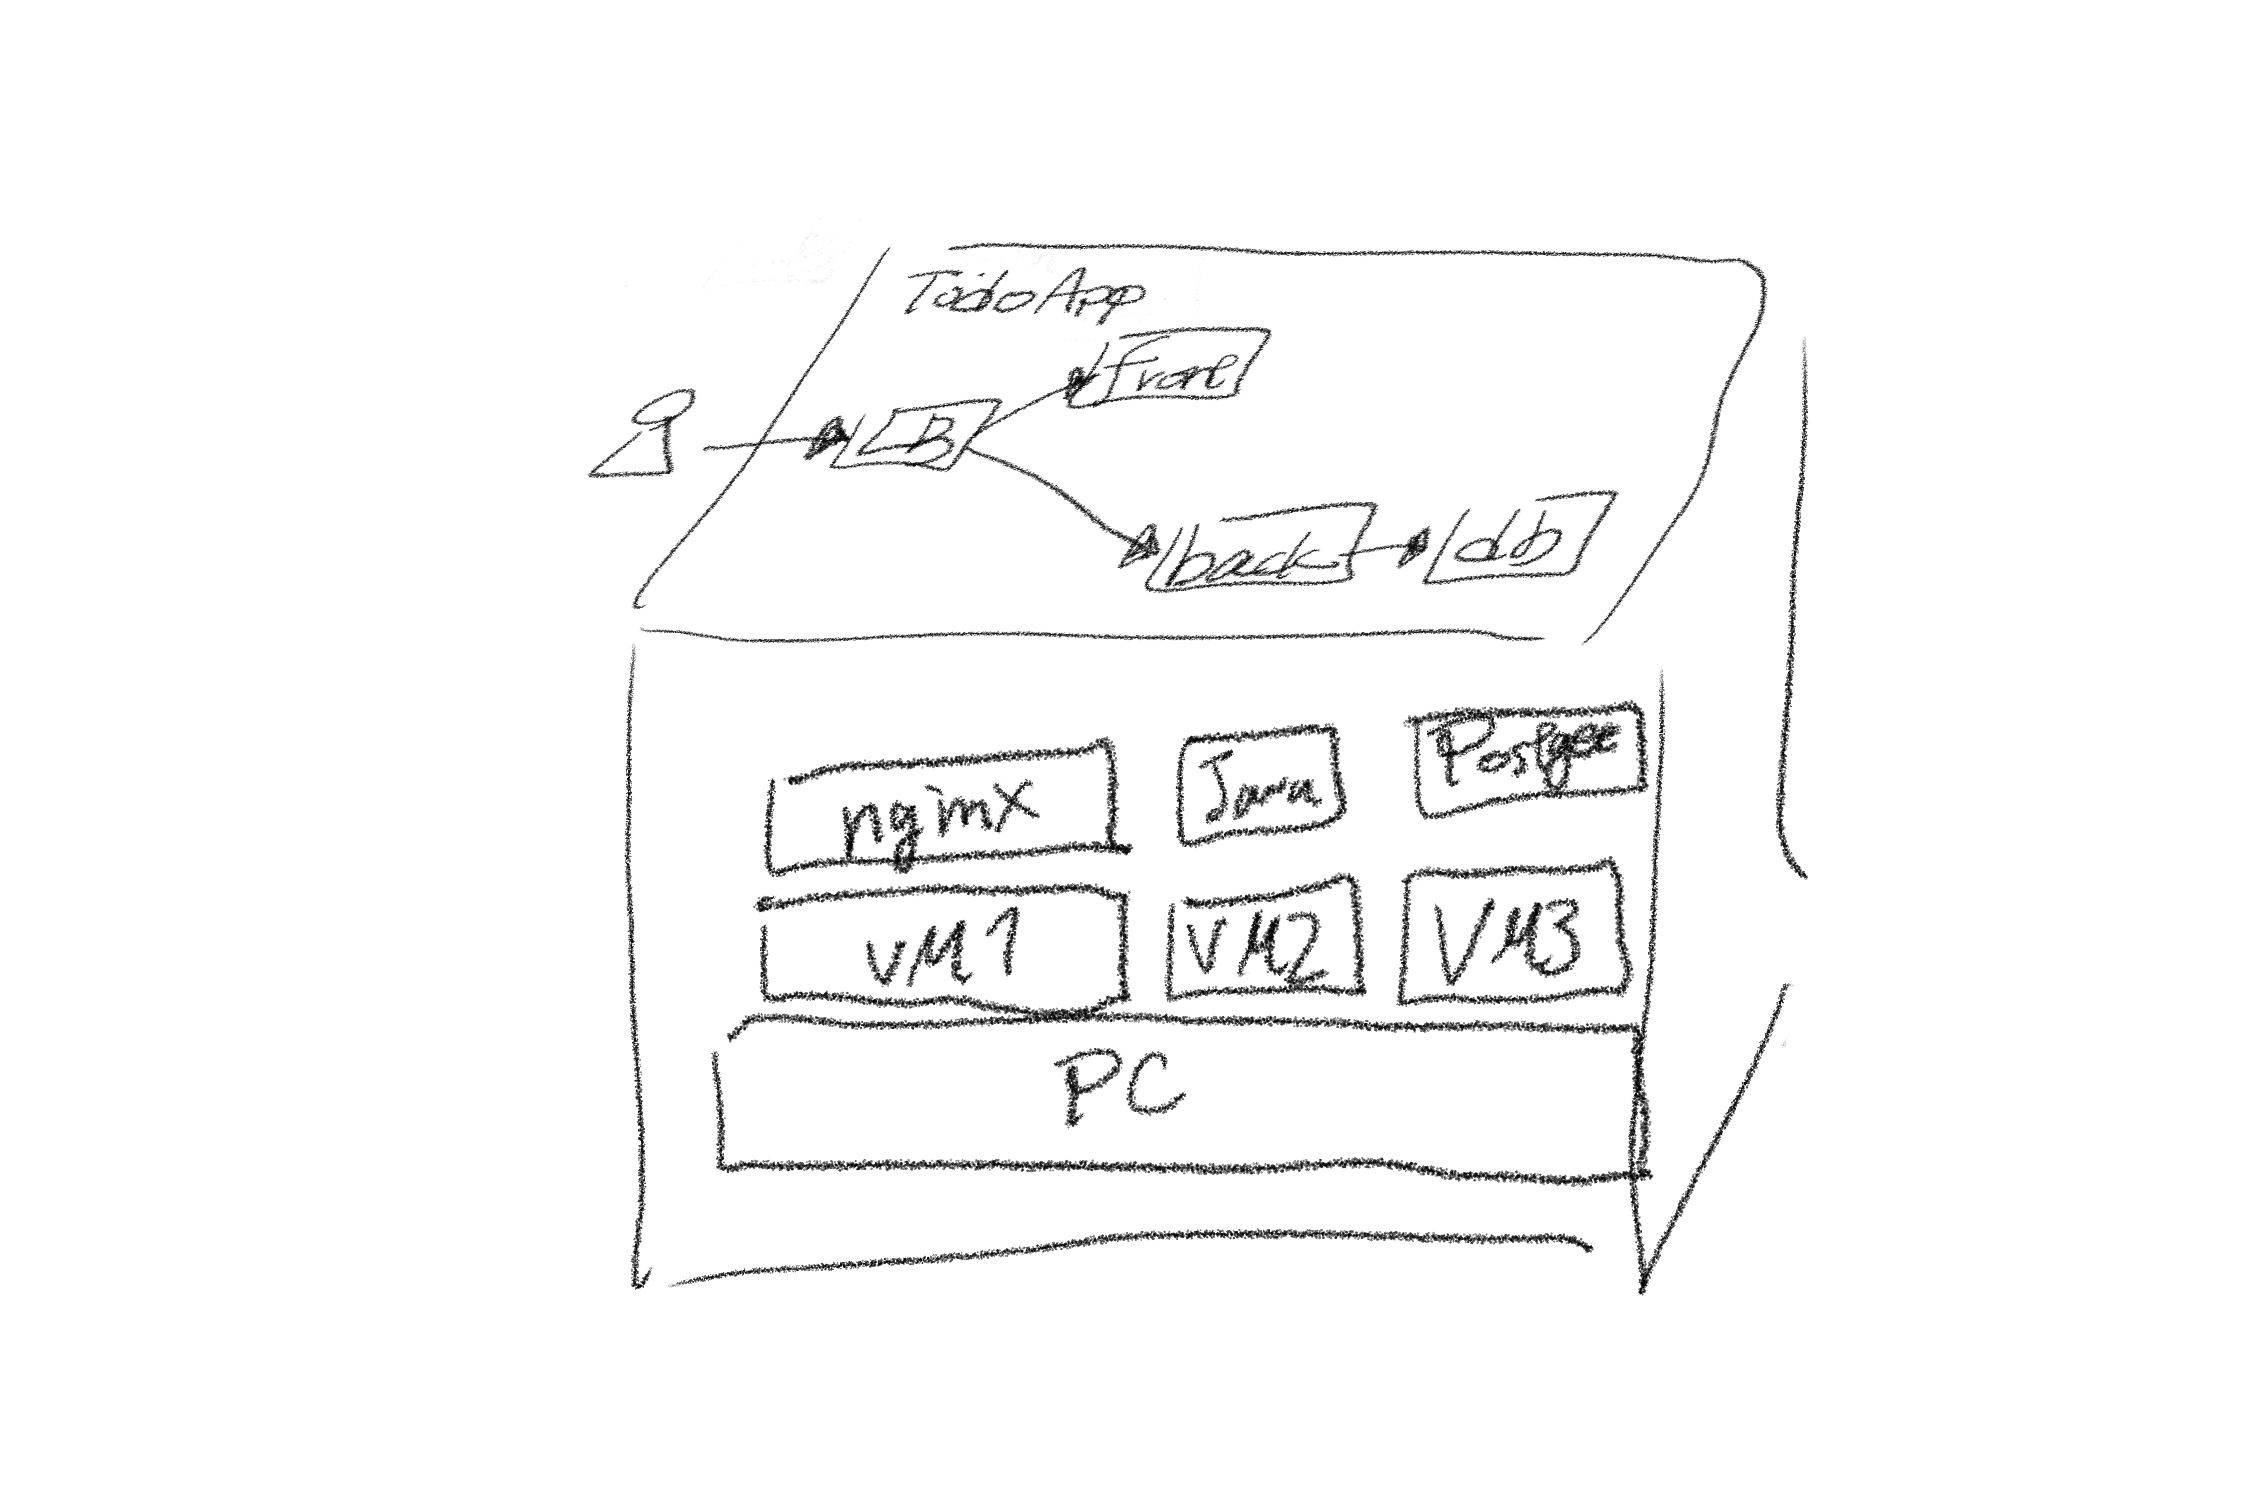 Todo App
front
LB
back
db
nginx
Java
Postgre
VM1
VM2
VM3
PC